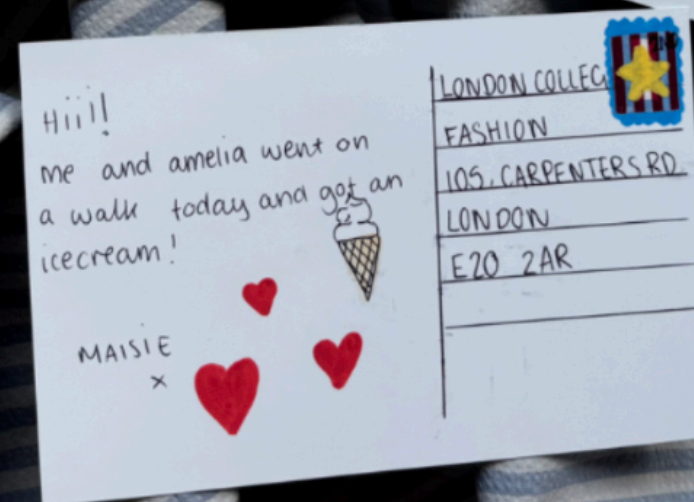 Hiiii!
me and amelia went on
a walk today and got an
icecream!
MAISIE
x
LONDON
FASHION
105, CARPENTERS RD
LONDON
E20 2AR